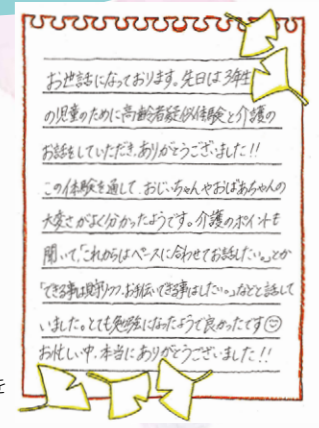 お世話になっております。先日は3年生
の児童のために高齢者疑似体験と介護の
お話をしていただき、ありがとうございました!!
この体験を通して、おじいちゃんやおばあちゃんの
大変さがよく分かったようです。介護のポイントを
聞いて、「これからはペースに合わせてお話したい。」とか
「できる事は見守りつつ、お手伝いできる事はしたい。」などと話して
いました。とても勉強になったようで良かったです☺
お忙しい中、本当にありがとうございました!!
を